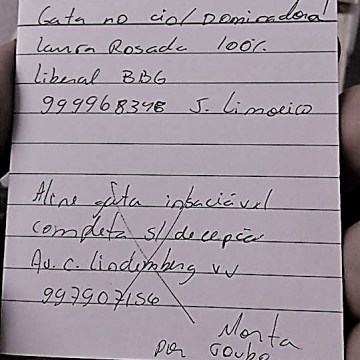 Gata no cio/Dominadora
Laura Rosada 100%
Liberal BBG
999968398 J. Limoeiro
Aline gata insaciável
completa s/decepção
Av. C. Lindemberg VV
997907156
Morta
por